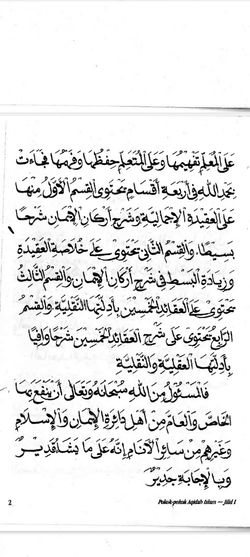 عَلَى الْمُعَلِّمِ تَفْهِيْمُهَا وَعَلَى الْمُتَعَلِّمِ حِفْظُهَا وَفَهْمُهَا فَجَاءَتْ
بِحَمْدِ اللهِ فِى أَرْبَعَةِ أَقْسَامٍ يَحْتَوِى الْقِسْمُ الْأَوَّلُ مِنْهَا
عَلَى الْعَقِيْدَةِ الْإِجْمَالِيَّةِ وَشَرْحِ أَرْكَانِ الْإِيْمَانِ شَرْحًا
بَسِيْطًا. وَالْقِسْمُ الثَّانِى يَحْتَوِى عَلَى خُلَاصَةِ الْعَقِيْدَةِ
وَزِيَادَةِ الْبَسْطِ فِى شَرْحِ أَرْكَانِ الْإِيْمَانِ وَالْقِسْمُ الثَّالِثُ
يَحْتَوِى عَلَى الْعَقَائِدِ الْخَمْسِيْنَ بِأَدِلَّتِهَا النَّقْلِيَّةِ وَالْقِسْمُ
الرَّابِعُ يَحْتَوِى عَلَى شَرْحِ الْعَقَائِدِ الْخَمْسِيْنَ شَرْحًا وَافِيًا
بِأَدِلَّتِهَا الْعَقْلِيَّةِ وَالنَّقْلِيَّةِ
فَالْمَسْئُوْلُ مِنَ اللهِ سُبْحَانَهُ وَتَعَالَى أَنْ يَنْفَعَ بِهَا
الْخَاصَّ وَالْعَامَّ مِنْ أَهْلِ دَائِرَةِ الْإِيْمَانِ وَالْإِسْلَامِ
وَغَيْرِهِمْ مِنْ سَائِرِ الْأَنَامِ إِنَّهُ عَلَى مَا يَشَاءُ قَدِيْرٌ
وَبِالْإِجَابَةِ جَدِيْرٌ
2 Pokok-pokok Aqidah Islam — Jilid I